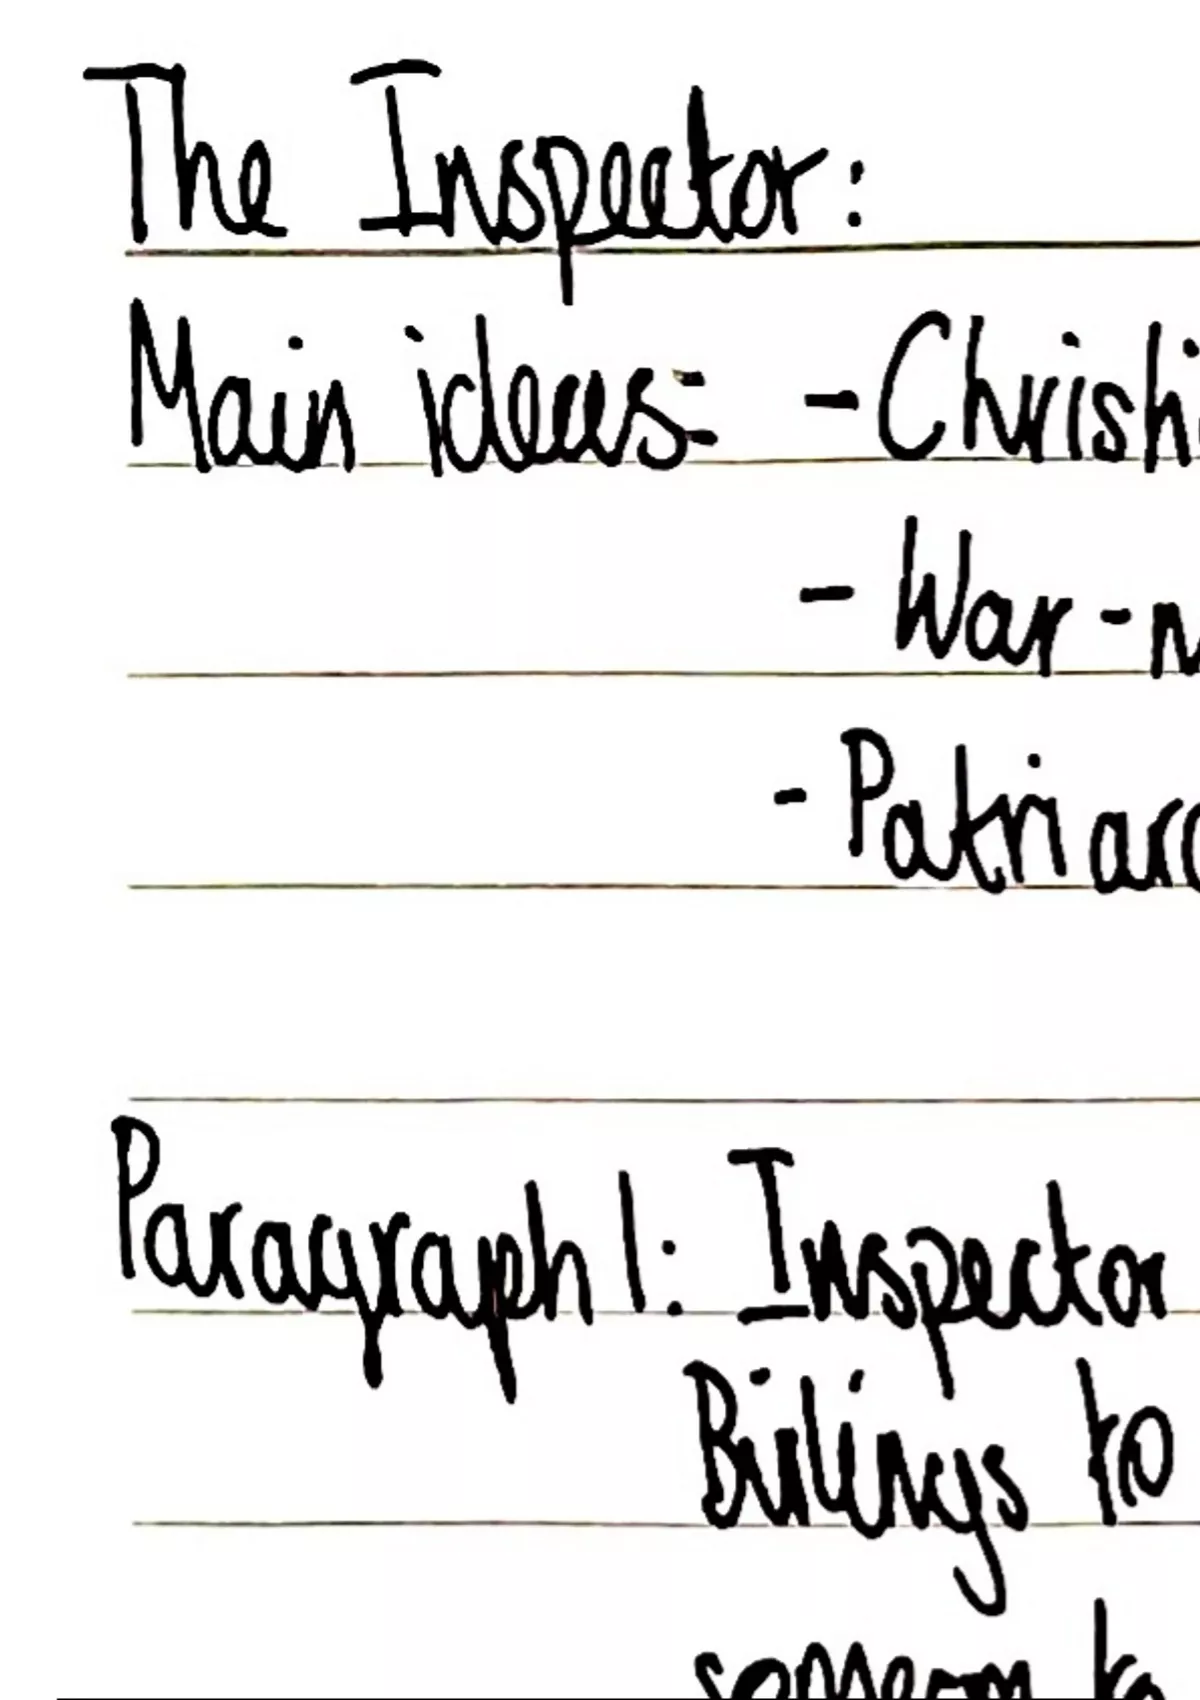 The Inspector:
Main ideas: - Christi
- War -
- Patriarc
Paragraph 1: Inspector
Birlings to
to